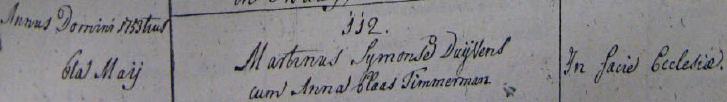 Annus Domini 1753tius
112.
6ta Maij
Martinus Symonse Duijvens
cum Anna Claas Timmerman
In facie Ecclesiæ.